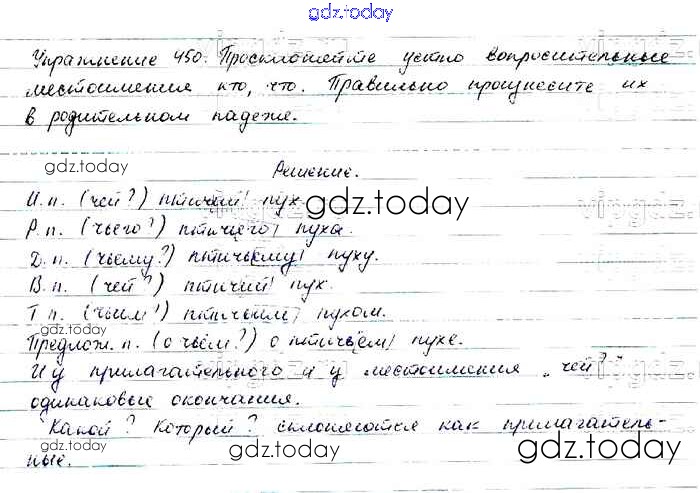 gdz.today
Упражнение 450. Просклоняйте устно вопросительные
местоимения кто, что. Правильно произнесите их
в родительном падеже.
gdz.today
Решение.
И.п. (чей?) птичий пух.
gdz.today
Р.п. (чьего?) птичьего пуха.
Д.п. (чьему?) птичьему пуху.
В.п. (чей?) птичий пух.
Т.п. (чьим?) птичьим пухом.
gdz.today
Предлож. п. (о чьём?) о птичьем пухе.
И у прилагательного и у местоимения „чей?"
одинаковые окончания.
gdz.today
Какой? Который? склоняются как прилагатель-
ные.
gdz.today
gdz.today